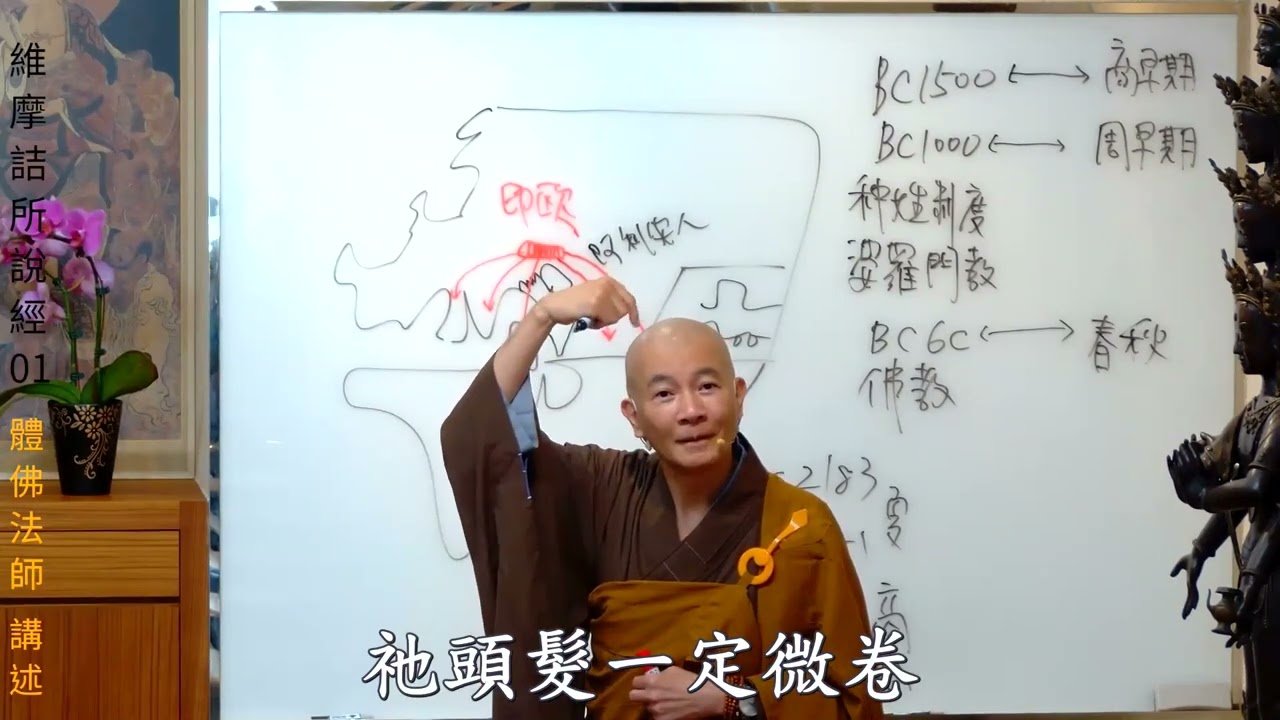 維摩詰所說經01
體佛法師 講述
BC1500 ↔ 商早期
BC1000 ↔ 周早期
种姓制度
婆羅門教
BC6C ↔ 春秋
佛教
印欧
阿利安人
2183 夏
商
祂頭髮一定微卷